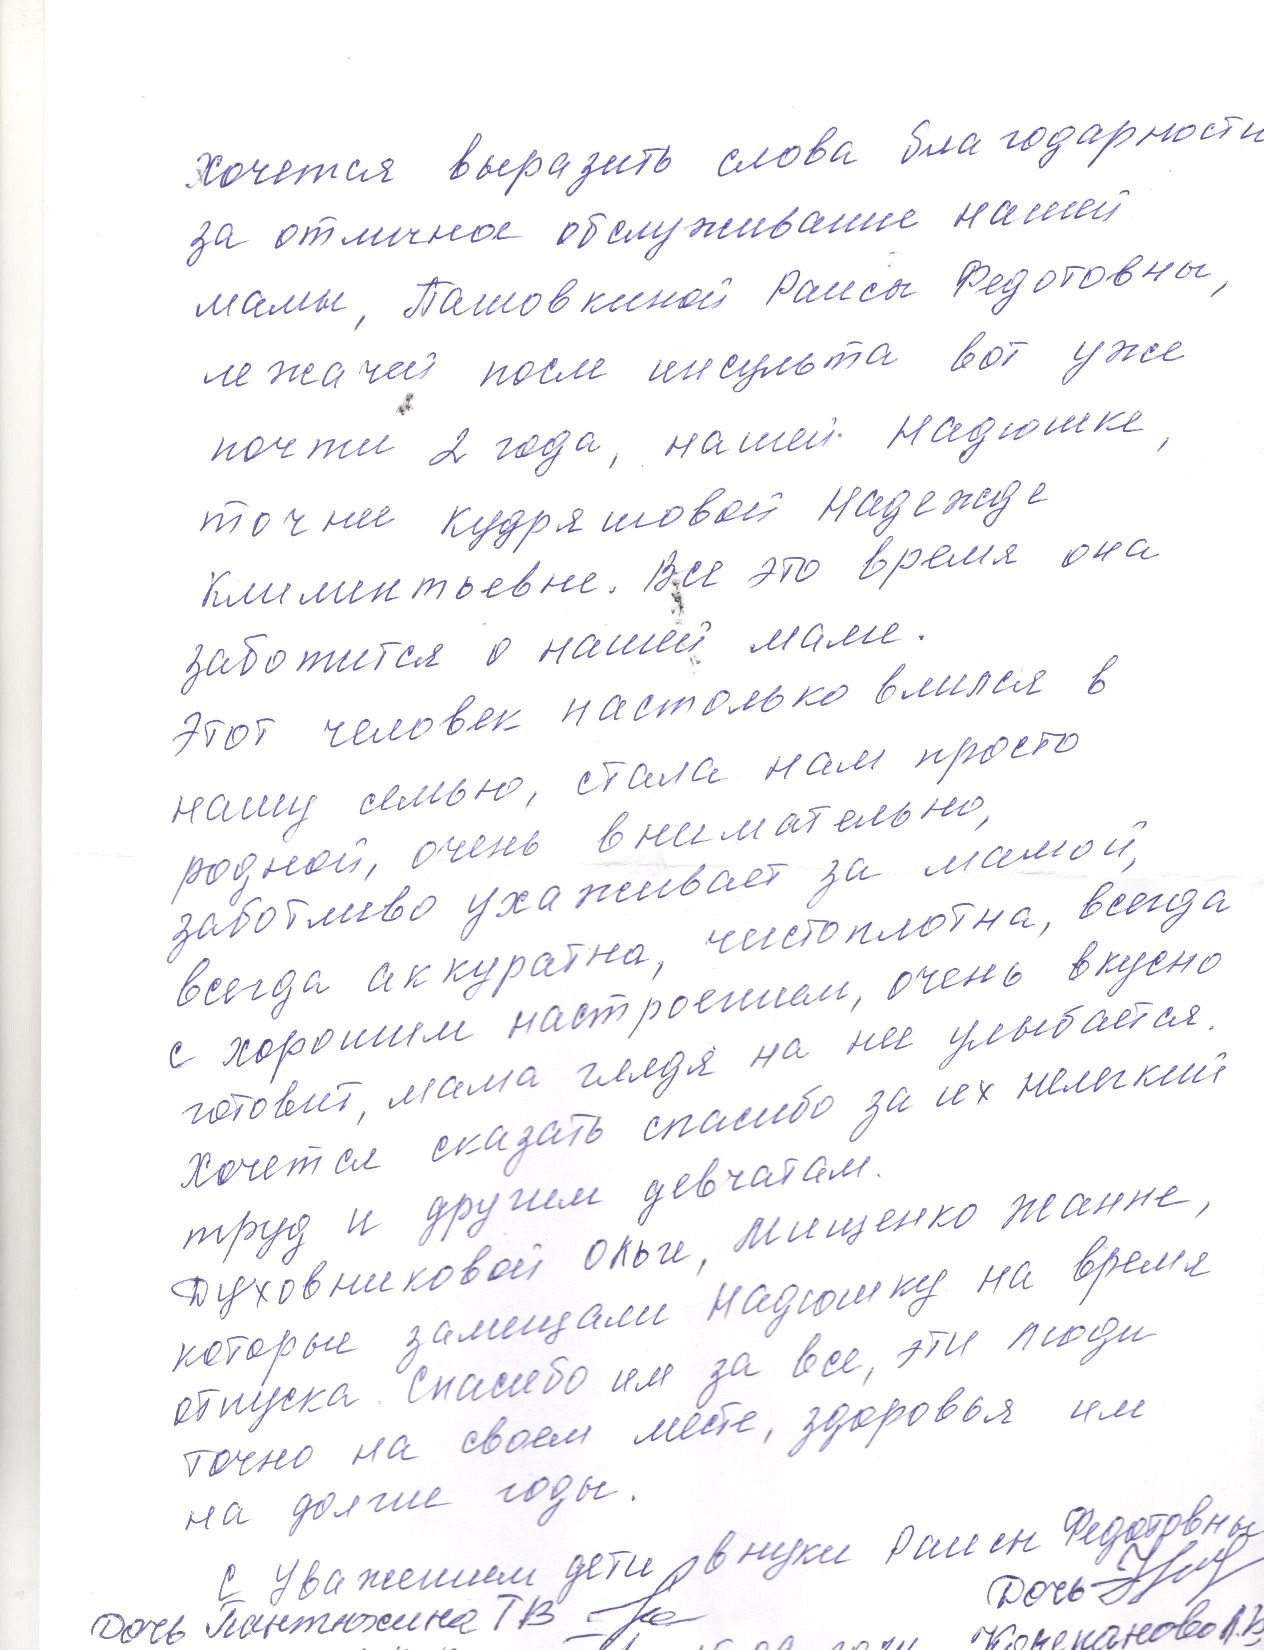 Хочется выразить слова благодарности
за отличное обслуживание нашей
мамы, Пашовкиной Раисы Федотовны,
лежачей после инсульта вот уже
почти 2 года, нашей Надюшке,
точнее Кудряшовой Надежде
Климентьевне. Все это время она
заботится о нашей маме.
Этот человек настолько влился в
нашу семью, стала нам просто
родной, очень внимательно,
заботливо ухаживает за мамой,
всегда аккуратна, чистоплотна, всегда
с хорошим настроением, очень вкусно
готовит, мама глядя на нее улыбается.
Хочется сказать спасибо за их нелегкий
труд и другим девчатам.
Духовниковой Ольге, Мищенко Жанне,
которые замещали Надюшку на время
отпуска. Спасибо им за все, эти люди
точно на своем месте, здоровья им
на долгие годы.
С Уважением дети, внуки Раисы Федотовны
Дочь Пантюхина ТВ
Дочь